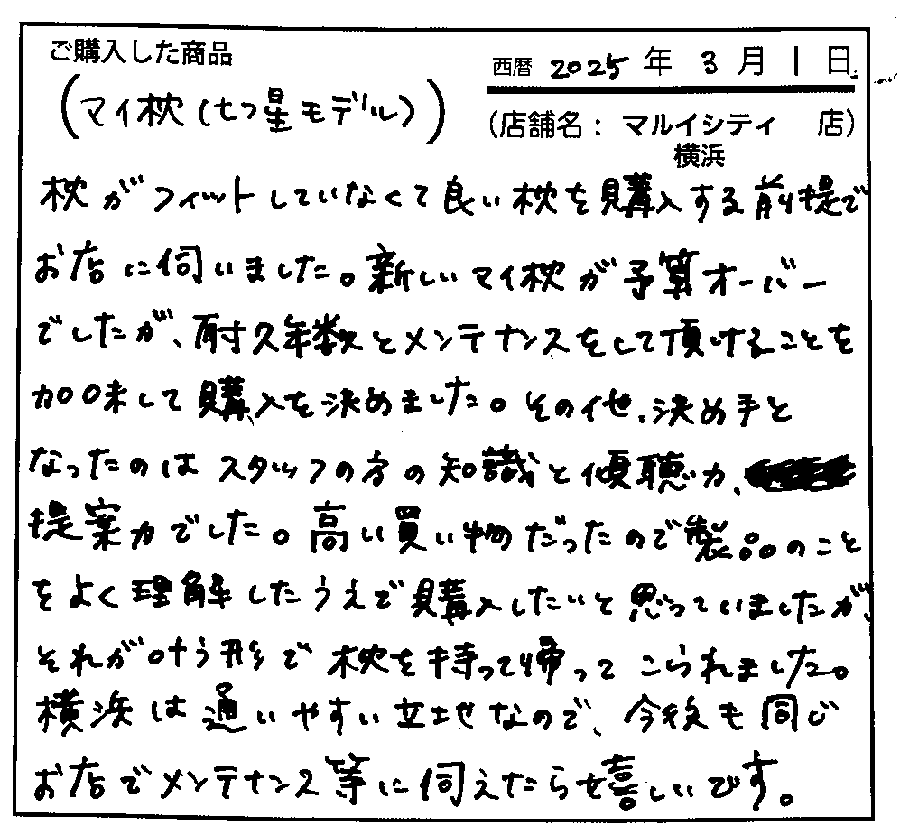 ご購入した商品
西暦 2025 年 3 月 1 日
(マイ枕(七つ星モデル))
(店舗名: マルイシティ 店)
横浜
枕がフィットしていなくて良い枕を購入する前提で
お店に伺いました。新しいマイ枕が予算オーバー
でしたが、耐久年数とメンテナンスをして頂けることを
加味して購入を決めました。その他、決め手と
なったのはスタッフの方の知識と傾聴力、
提案力でした。高い買い物だったので製品のこと
をよく理解したうえで購入したいと思っていましたが、
それが叶う形で枕を持って帰ってこられました。
横浜は通いやすい立地なので、今後も同じ
お店でメンテナンス等に伺えたら嬉しいです。